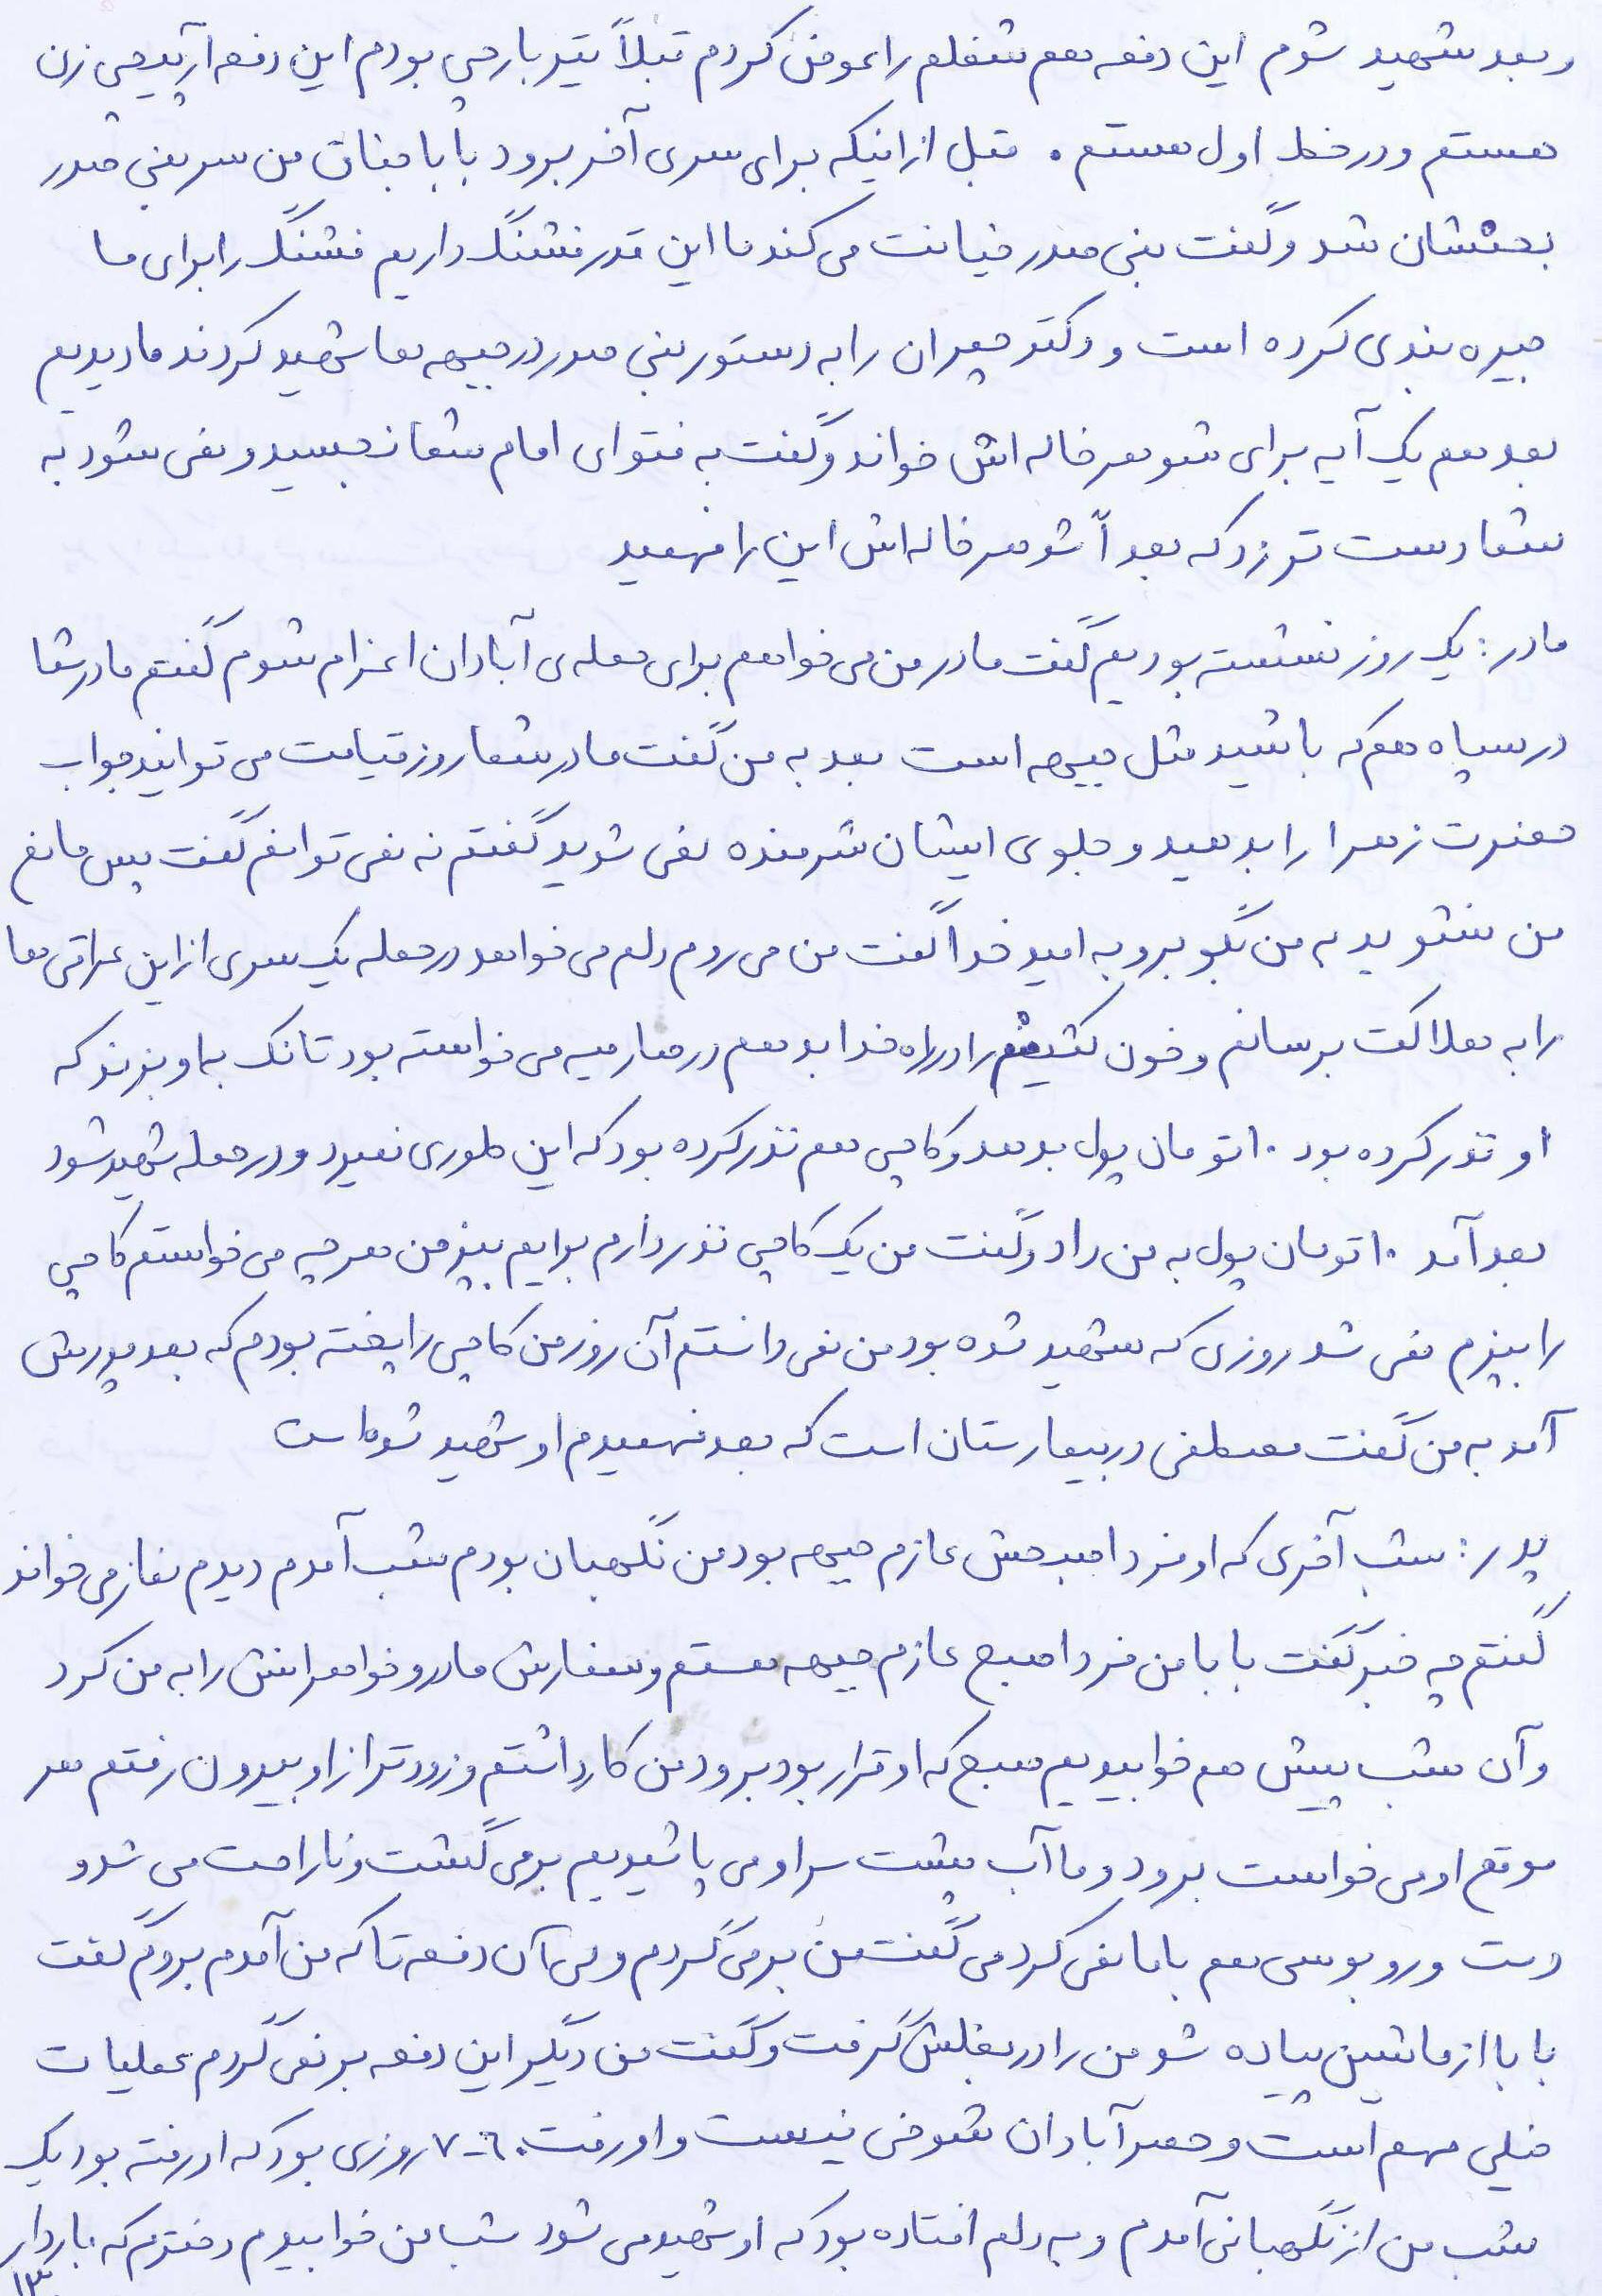 و بعد شهید شوم این دفعه هم شغلم را عوض کردم قبلاً تیربارچی بودم این دفعه آرپیجی زن
هستم و در خط اول هستم . قبل از اینکه برای سری آخر برود با با جناق من سر بنی صدر
بحثشان شد و گفت بنی صدر خیانت می کند ما این قدر فشنگ داریم فشنگ را برای ما
جیره بندی کرده است و دکتر چمران را به دستور بنی صدر در جبهه ها شهید کردند ما دیدیم
بعد هم یک آیه برای شوهر خاله اش خواند و گفت به فتوای امام شما نجسید و نمی شود به
شما دست تر زد که بعداً شوهر خاله اش این را فهمید
مادر : یک روز نشسته بودیم گفت مادر من می خواهم برای حمله ی آبادان اعزام شوم گفتم مادر شما
در سپاه هم که باشید مثل جبهه است بعد به من گفت مادر شما روز قیامت می توانید جواب
حضرت زهرا را بدهید و جلوی ایشان شرمنده نمی شوید گفتم نه نمی توانم گفت پس مانع
من نشوید به من بگو برو به امید خدا گفت من می روم دلم می خواهد در حمله یک سری از این عراقی ها
را به هلاکت برسانم و خون کثیفم را در راه خدا بدهم در صارمیه می خواسته بود تانک به او بزند که
او نذر کرده بود ۱۰ تومان پول بدهد و کاچی هم نذر کرده بود که این طوری نمیرد و در حمله شهید شود
بعد آمد ۱۰ تومان پول به من داد و گفت من یک کاچی نذر دارم برایم بپز من هر چه می خواستم کاچی
را بپزم نمی شد روزی که شهید شده بود من نمی دانستم آن روز من کاچی را پخته بودم که بعد پدرش
آمد به من گفت مصطفی در بیمارستان است که بعد فهمیدم او شهید شده است
پدر : شب آخری که او فردا صبحش عازم جبهه بود من نگهبان بودم شب آمدم دیدم نماز می خواند
گفتم چه خبر گفت بابا من فردا صبح عازم جبهه هستم و سفارش مادر و خواهرانش را به من کرد
و آن شب پیش هم خوابیدیم صبح که او قرار بود برود من کار داشتم و زودتر از او بیرون رفتم هر
موقع او می خواست برود و ما آب پشت سر او می پاشیدیم برمی گشت و ناراحت می شد و
دست و روبوسی هم با ما نمی کرد می گفت من برمی گردم ولی آن دفعه تا که من آمدم بروم گفت
بابا از ماشین پیاده شو من را در بغلش گرفت و گفت من دیگر این دفعه بر نمی گردم عملیات
خیلی مهم است و حصر آبادان شوخی نیست و او رفت . ۶-۷ روزی بود که او رفته بود یک
شب من از نگهبانی آمدم و به دلم افتاده بود که او شهید می شود شب من خوابیدم دخترم که باردار
۱۳